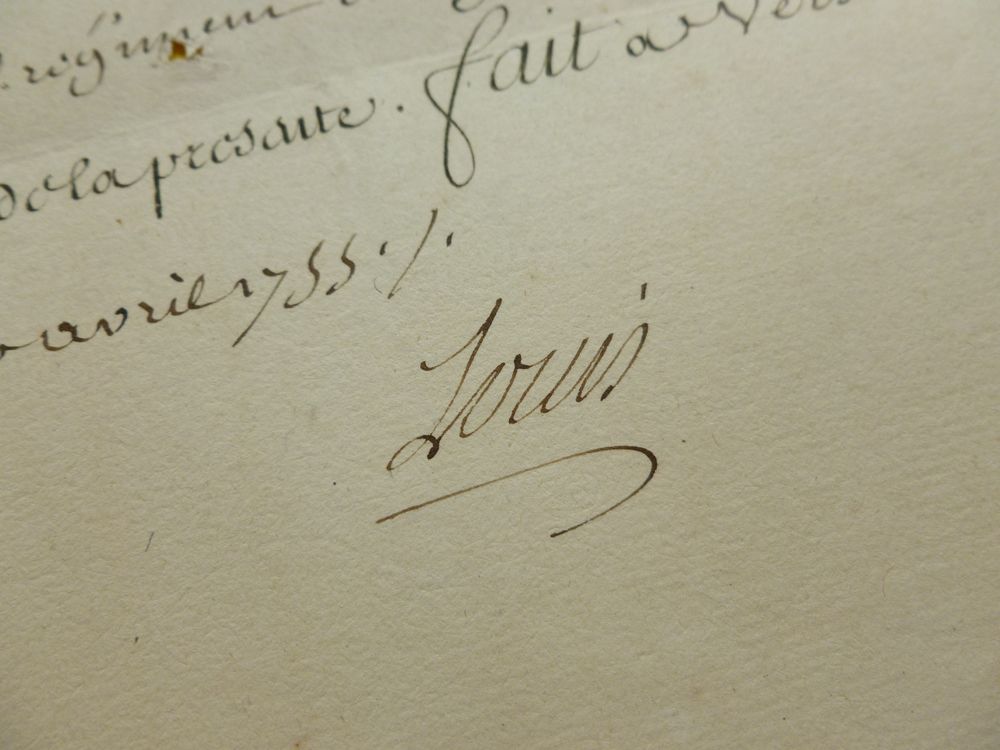 regiment
de la presente. fait a Vers
avril 1755 ./.
Louis